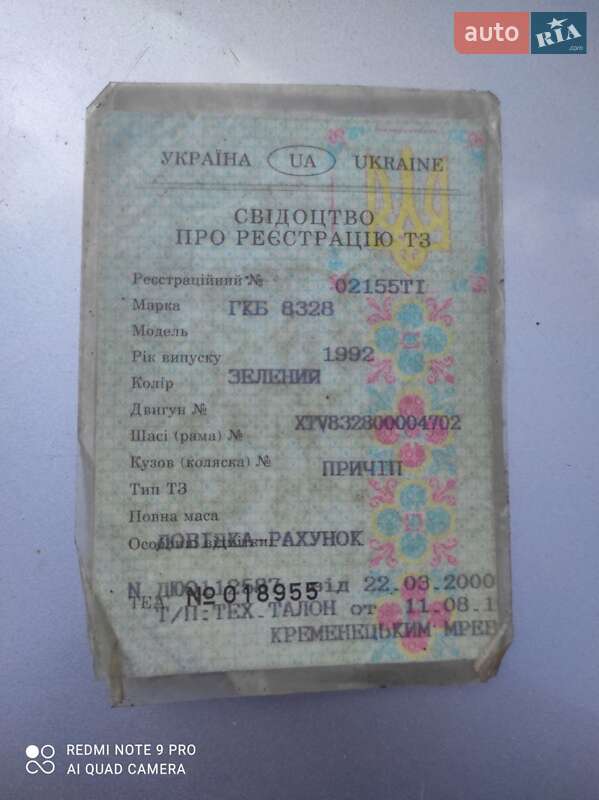 auto RIA .com
УКРАЇНА UA UKRAINE
СВІДОЦТВО
ПРО РЕЄСТРАЦІЮ ТЗ
Реєстраційний № 02155ТІ
Марка ГКБ 8328
Модель
Рік випуску 1992
Колір ЗЕЛЕНИЙ
Двигун №
Шасі (рама) № XTV832800004702
Кузов (коляска) №
Тип ТЗ ПРИЧІП
Повна маса
Особливі ДОВІДКА-РАХУНОК
N від 22.03.2000
ТЕА № 018955
Т/П:ТЕХ.ТАЛОН от 11.08.1
КРЕМЕНЕЦЬКИМ МРЕВ
REDMI NOTE 9 PRO
AI QUAD CAMERA